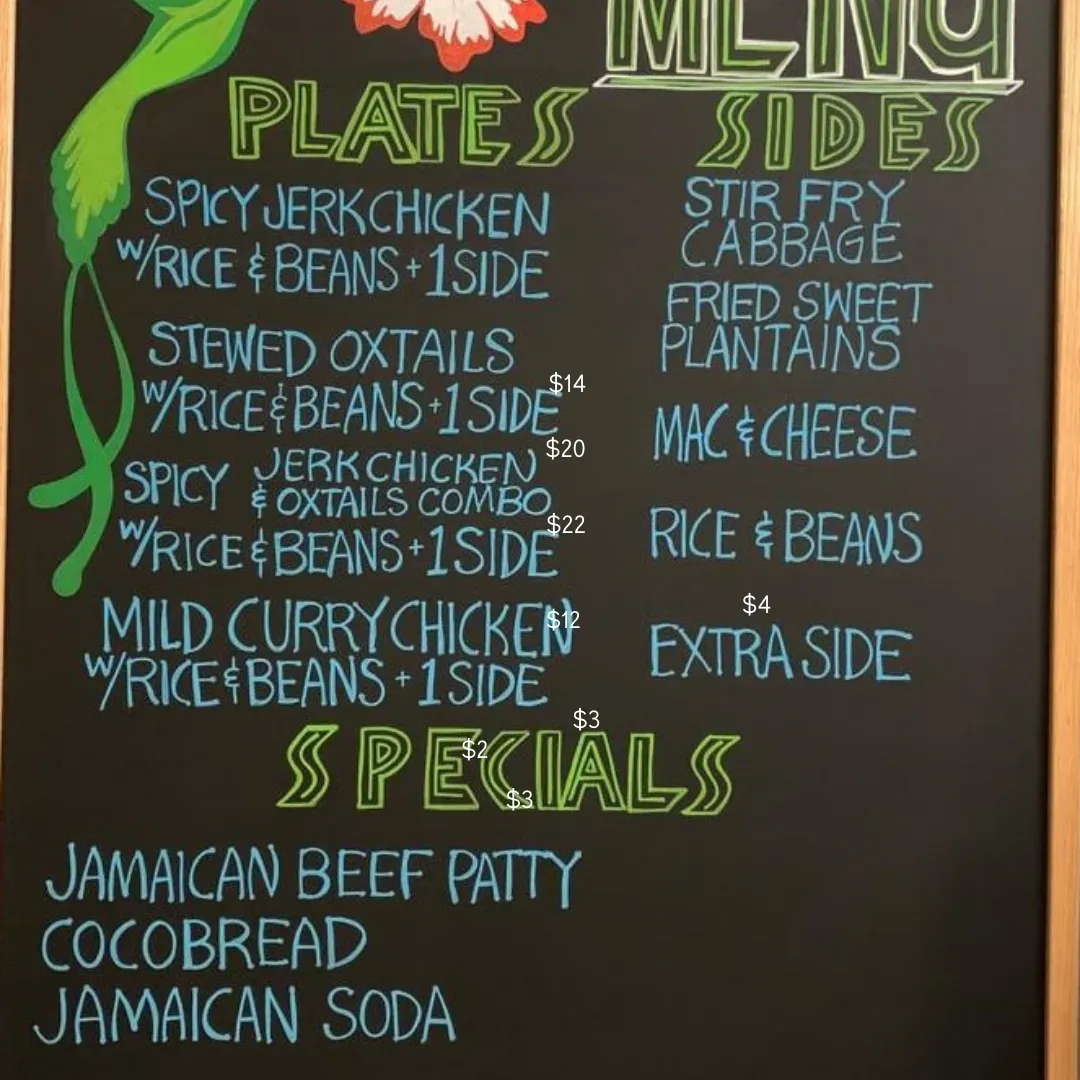 MENU
PLATES
SPICY JERK CHICKEN
W/RICE & BEANS + 1 SIDE
STEWED OXTAILS
$14
W/RICE & BEANS + 1 SIDE
$20
SPICY JERK CHICKEN
& OXTAILS COMBO
$22
W/RICE & BEANS + 1 SIDE
MILD CURRY CHICKEN
$12
W/RICE & BEANS + 1 SIDE
SIDES
STIR FRY
CABBAGE
FRIED SWEET
PLANTAINS
MAC & CHEESE
RICE & BEANS
$4
EXTRA SIDE
$3
SPECIALS
$2
$3
JAMAICAN BEEF PATTY
COCOBREAD
JAMAICAN SODA